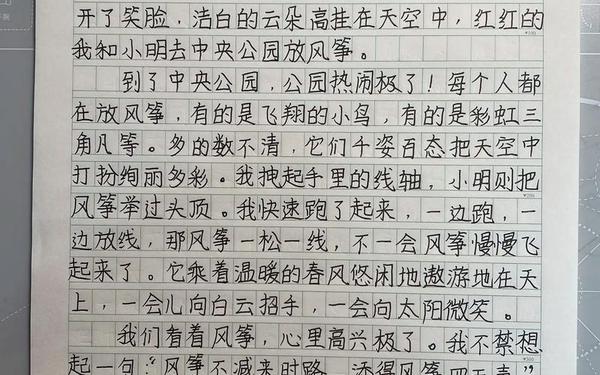 开了笑脸，洁白的云朵高挂在天空中，红红的
我和小明去中央公园放风筝。
到了中央公园，公园热闹极了！每个人都
在放风筝，有的是飞翔的小鸟，有的是彩虹三
角凡等。多的数不清，它们千姿百态把天空中
打扮绚丽多彩。我拽起手里的线轴，小明则把
风筝举过头顶。我快速跑了起来，一边跑，一
边放线，那风筝一松一线，不一会风筝慢慢飞
起来了。它乘着温暖的春风悠闲地遨游地在天
上，一会儿向白云招手，一会向太阳微笑。
我们看着风筝，心里高兴极了。我不禁想
起一句“风筝不减来时路，添得风筝四五声”